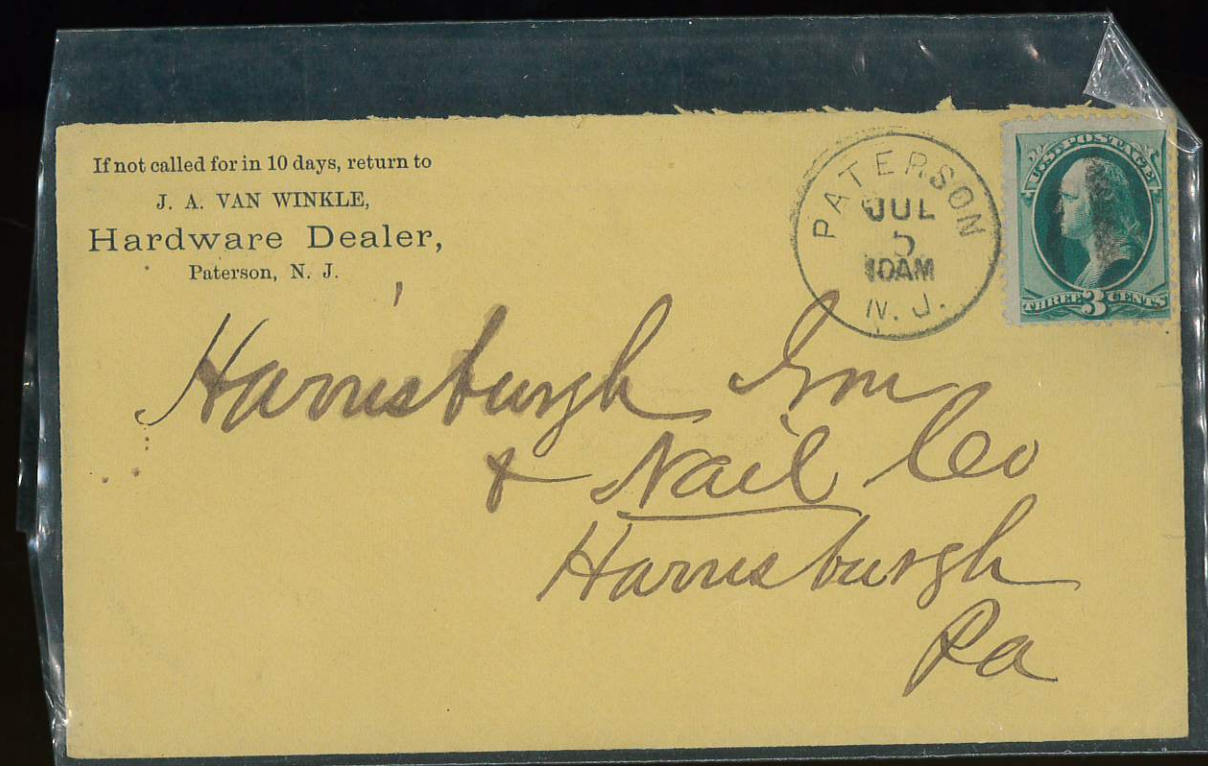 If not called for in 10 days, return to
J. A. VAN WINKLE,
Hardware Dealer,
Paterson, N. J.
PATERSON
JUL
5
10AM
N. J.
U.S. POSTAGE
THREE 3 CENTS
Harrisburgh Iron
& Nail Co
Harrisburgh
Pa